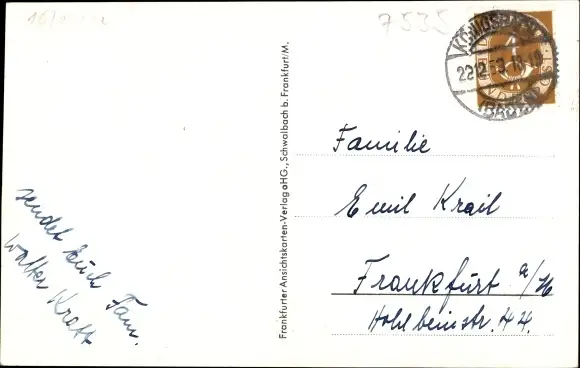 7535
(BADEN)
Frankfurter Ansichtskarten-Verlag aHG., Schwalbach b. Frankfurt/M.
Familie
Emil Krail
Frankfurt a/M
Holbeinstr. 44.
sendet Euch Fam.
Walter Kratt